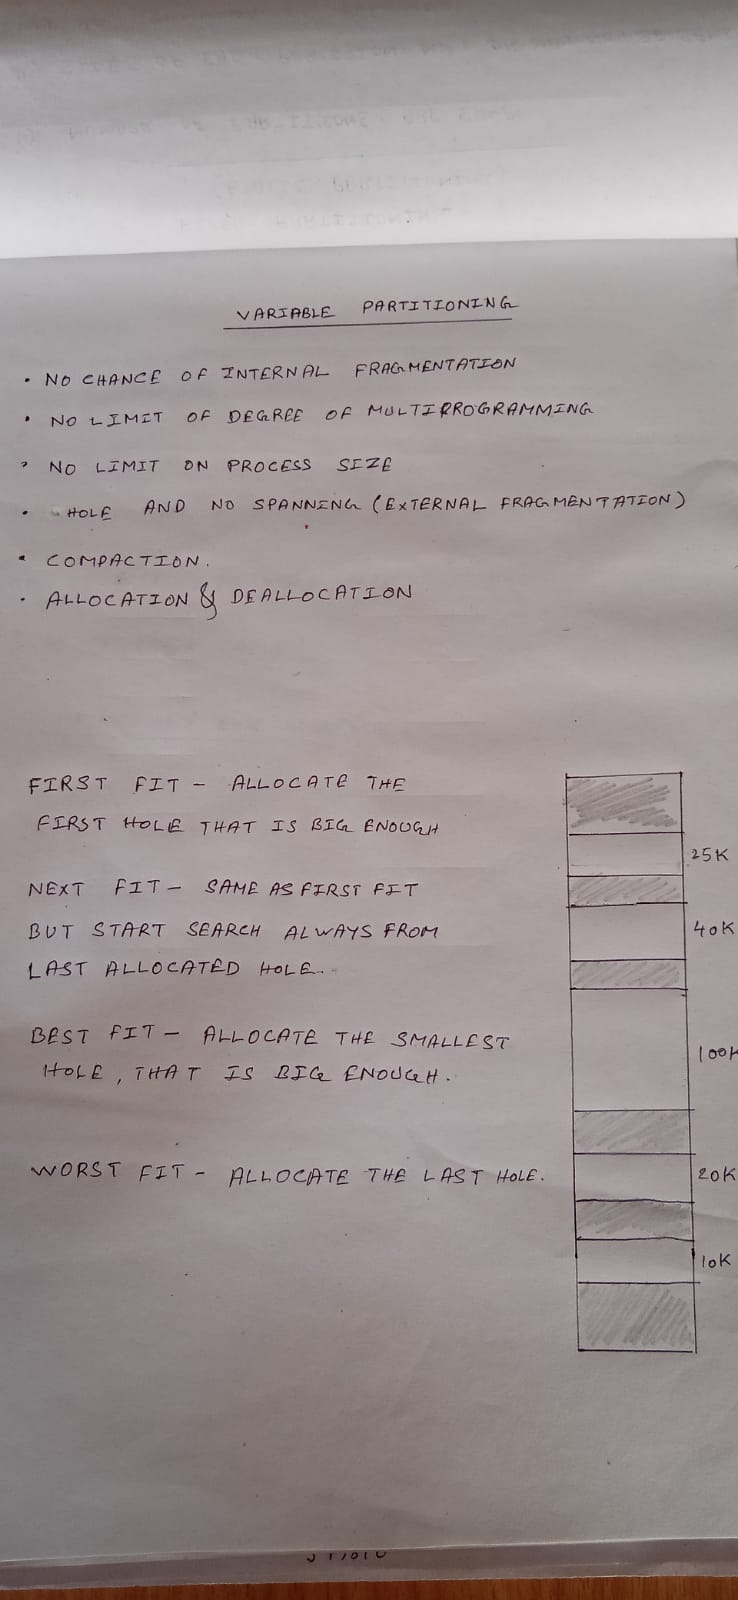 VARIABLE PARTITIONING
• NO CHANCE OF INTERNAL FRAGMENTATION
• NO LIMIT OF DEGREE OF MULTIPROGRAMMING
• NO LIMIT ON PROCESS SIZE
• HOLE AND NO SPANNING (EXTERNAL FRAGMENTATION)
• COMPACTION.
• ALLOCATION & DEALLOCATION
FIRST FIT - ALLOCATE THE
FIRST HOLE THAT IS BIG ENOUGH
25K
NEXT FIT - SAME AS FIRST FIT
BUT START SEARCH ALWAYS FROM
40K
LAST ALLOCATED HOLE.
BEST FIT - ALLOCATE THE SMALLEST
100K
HOLE, THAT IS BIG ENOUGH.
WORST FIT - ALLOCATE THE LAST HOLE.
20K
10K